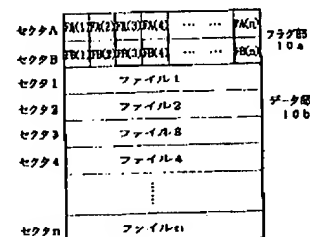 セクタA FA(1) FA(2) FA(3) FA(4) … … FA(n)
セクタB FB(1) FB(2) FB(3) FB(4) … … FB(n)
フラグ部
10a
セクタ1 ファイル1
セクタ2 ファイル2
データ部
10b
セクタ3 ファイル3
セクタ4 ファイル4
セクタn ファイルn